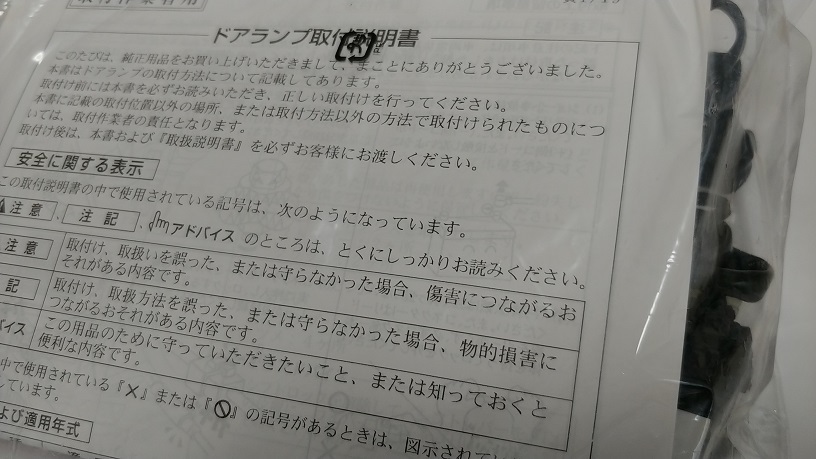 取付作業者用
ドアランプ取付説明書
このたびは、純正用品をお買い上げいただきまして、まことにありがとうございました。
本書はドアランプの取付方法について記載してあります。
取付け前には本書を必ずお読みいただき、正しい取付けを行ってください。
本書に記載の取付位置以外の場所、または取付方法以外の方法で取付けられたものにつ
いては、取付作業者の責任となります。
取付け後は、本書および『取扱説明書』を必ずお客様にお渡しください。
安全に関する表示
この取付説明書の中で使用されている記号は、次のようになっています。
注意、注記、アドバイスのところは、とくにしっかりお読みください。
注意 取付け、取扱いを誤った、または守らなかった場合、傷害につながるお
それがある内容です。
記 取付け、取扱方法を誤った、または守らなかった場合、物的損害に
つながるおそれがある内容です。
バイス この用品のために守っていただきたいこと、または知っておくと
便利な内容です。
中で使用されている『×』または『🚫』の記号があるときは、図示されてい
しています。
よび適用年式